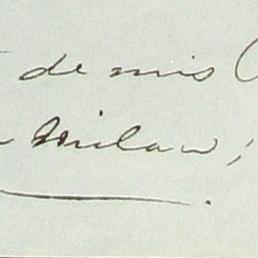 de mis
Milan;